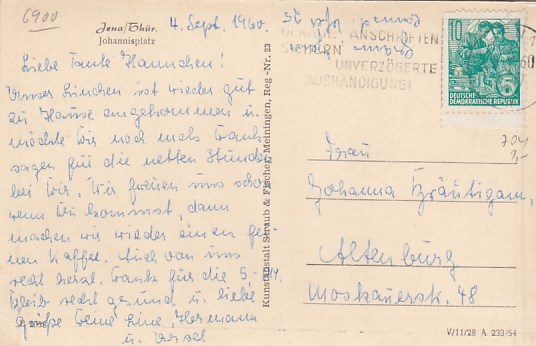 6900
Jena/Thür.
Johannisplatz
4. Sept. 1960.
Liebe Tante Hannchen!
Unser Linchen ist wieder gut
zu Hause angekommen u.
möchte Dir noch mals Dank
sagen für die netten Stunden
bei Dir. Wir freuen uns schon
wenn Du kommst, dann
machen wir wieder einen
Kaffee. Auch von uns
recht herzl. Dank für die 5.-
Bleib recht gesund u. liebe
Grüße Deine Line, Hermann
u. Ursel
Kunstanstalt Straub & Fischer, Meiningen, Reg.-Nr. 23
GENAUE ANSCHRIFTEN
SICHERN
UNVERZÖGERTE
AUSHÄNDIGUNG!
10
5
DEUTSCHE
DEMOKRATISCHE REPUBLIK
60
Frau
Johanna Bräutigam,
Altenburg
Moskauerstr. 48
V/11/28 A 233/54